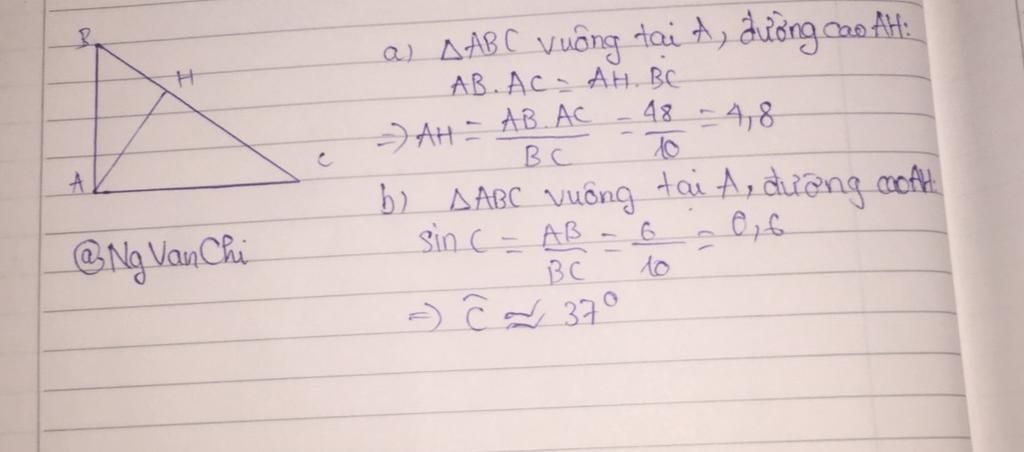 B
H
A
C
@NgVanChi
a) △ABC vuông tại A, đường cao AH:
AB.AC = AH.BC
=> AH = AB.AC/BC = 48/10 = 4,8
b) △ABC vuông tại A, đường cao AH:
sin C = AB/BC = 6/10 = 0,6
=> Ĉ ≈ 37°